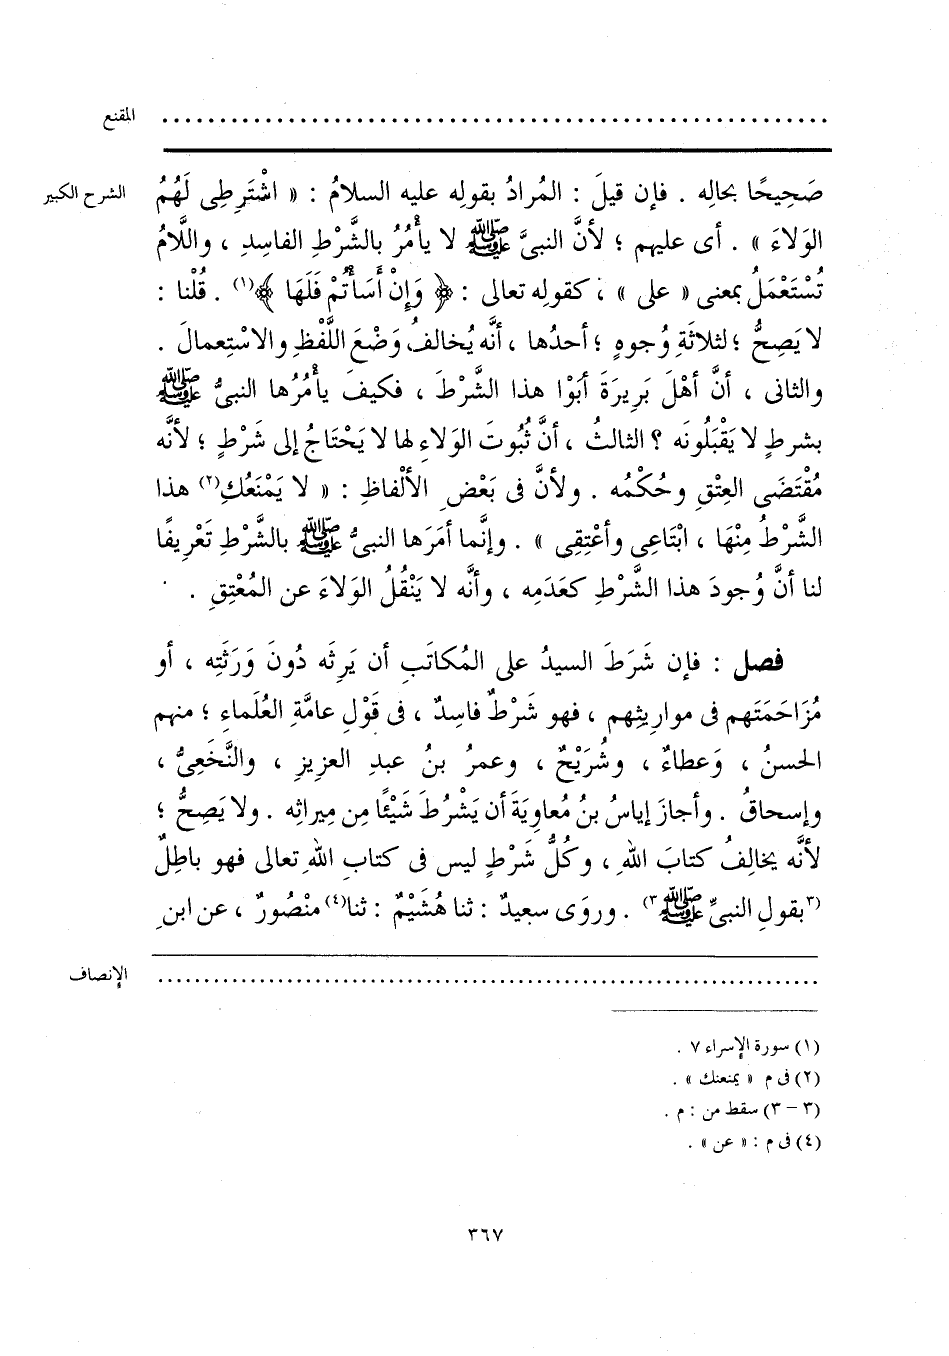 المقنع ..........................................................
الشرح الكبير صَحِيحًا بحالِه . فإن قيلَ : المُرادُ بقولِه عليه السلامُ : « اشْتَرِطِى لَهُمُ
الوَلاءَ » . أى عليهم ؛ لأنَّ النبىَّ ﷺ لا يأْمُرُ بالشَّرْطِ الفاسِدِ ، واللَّامُ
تُسْتَعْمَلُ بمعنى « على » ، كقولِه تعالى : ﴿ وَإِنْ أَسَأْتُمْ فَلَهَا ﴾(١) . قُلْنا :
لا يَصِحُّ ؛ لثلاثَةِ وُجوهٍ ؛ أحدُها ، أنَّه يُخالفُ وَضْعَ اللَّفْظِ والاسْتِعمالَ .
والثانى ، أنَّ أهْلَ بَرِيرَةَ أبَوْا هذا الشَّرْطَ ، فكيفَ يأْمُرُها النبىُّ ﷺ
بشرطٍ لا يَقْبَلُونَه ؟ الثالثُ ، أنَّ ثُبُوتَ الوَلاءِ لها لا يَحْتاجُ إلى شَرْطٍ ؛ لأنَّه
مُقْتَضَى العِتْقِ وحُكْمُه . ولأنَّ فى بَعْضِ الألْفاظِ : « لا يَمْنَعُكِ(٢) هذا
الشَّرْطُ مِنْهَا ، ابْتَاعِى وأعْتِقِى » . وإنَّما أمَرَها النبىُّ ﷺ بالشَّرْطِ تَعْرِيفًا
لنا أنَّ وُجودَ هذا الشَّرْطِ كعَدَمِه ، وأنَّه لا يَنْقُلُ الوَلاءَ عن المُعْتِقِ .
فصل : فإن شَرَطَ السيدُ على المُكاتَبِ أن يَرِثَه دُونَ وَرَثَتِه ، أو
مُزَاحَمَتَهم فى مواريثِهم ، فهو شَرْطٌ فاسِدٌ ، فى قَوْلِ عامَّةِ العُلَماءِ ؛ منهم
الحسنُ ، وَعطاءٌ ، وشُرَيْحٌ ، وعمرُ بنُ عبدِ العزِيزِ ، والنَّخَعِىُّ ،
وإسحاقُ . وأجازَ إياسُ بنُ مُعاوِيَةَ أن يَشْرُطَ شَيْئًا مِن مِيراثِه . ولا يَصِحُّ ؛
لأنَّه يخالِفُ كتابَ اللهِ ، وكُلُّ شَرْطٍ ليس فى كتابِ اللهِ تعالى فهو باطِلٌ
(٣بقولِ النبىِّ ﷺ٣) . وروَى سعيدٌ : ثنا هُشَيْمٌ : ثنا(٤) منْصُورٌ ، عن ابنِ
الإنصاف ..........................................................
(١) سورة الإسراء ٧ .
(٢) فى م « يمنعنك » .
(٣ - ٣) سقط من : م .
(٤) فى م : « عن » .
٣٦٧